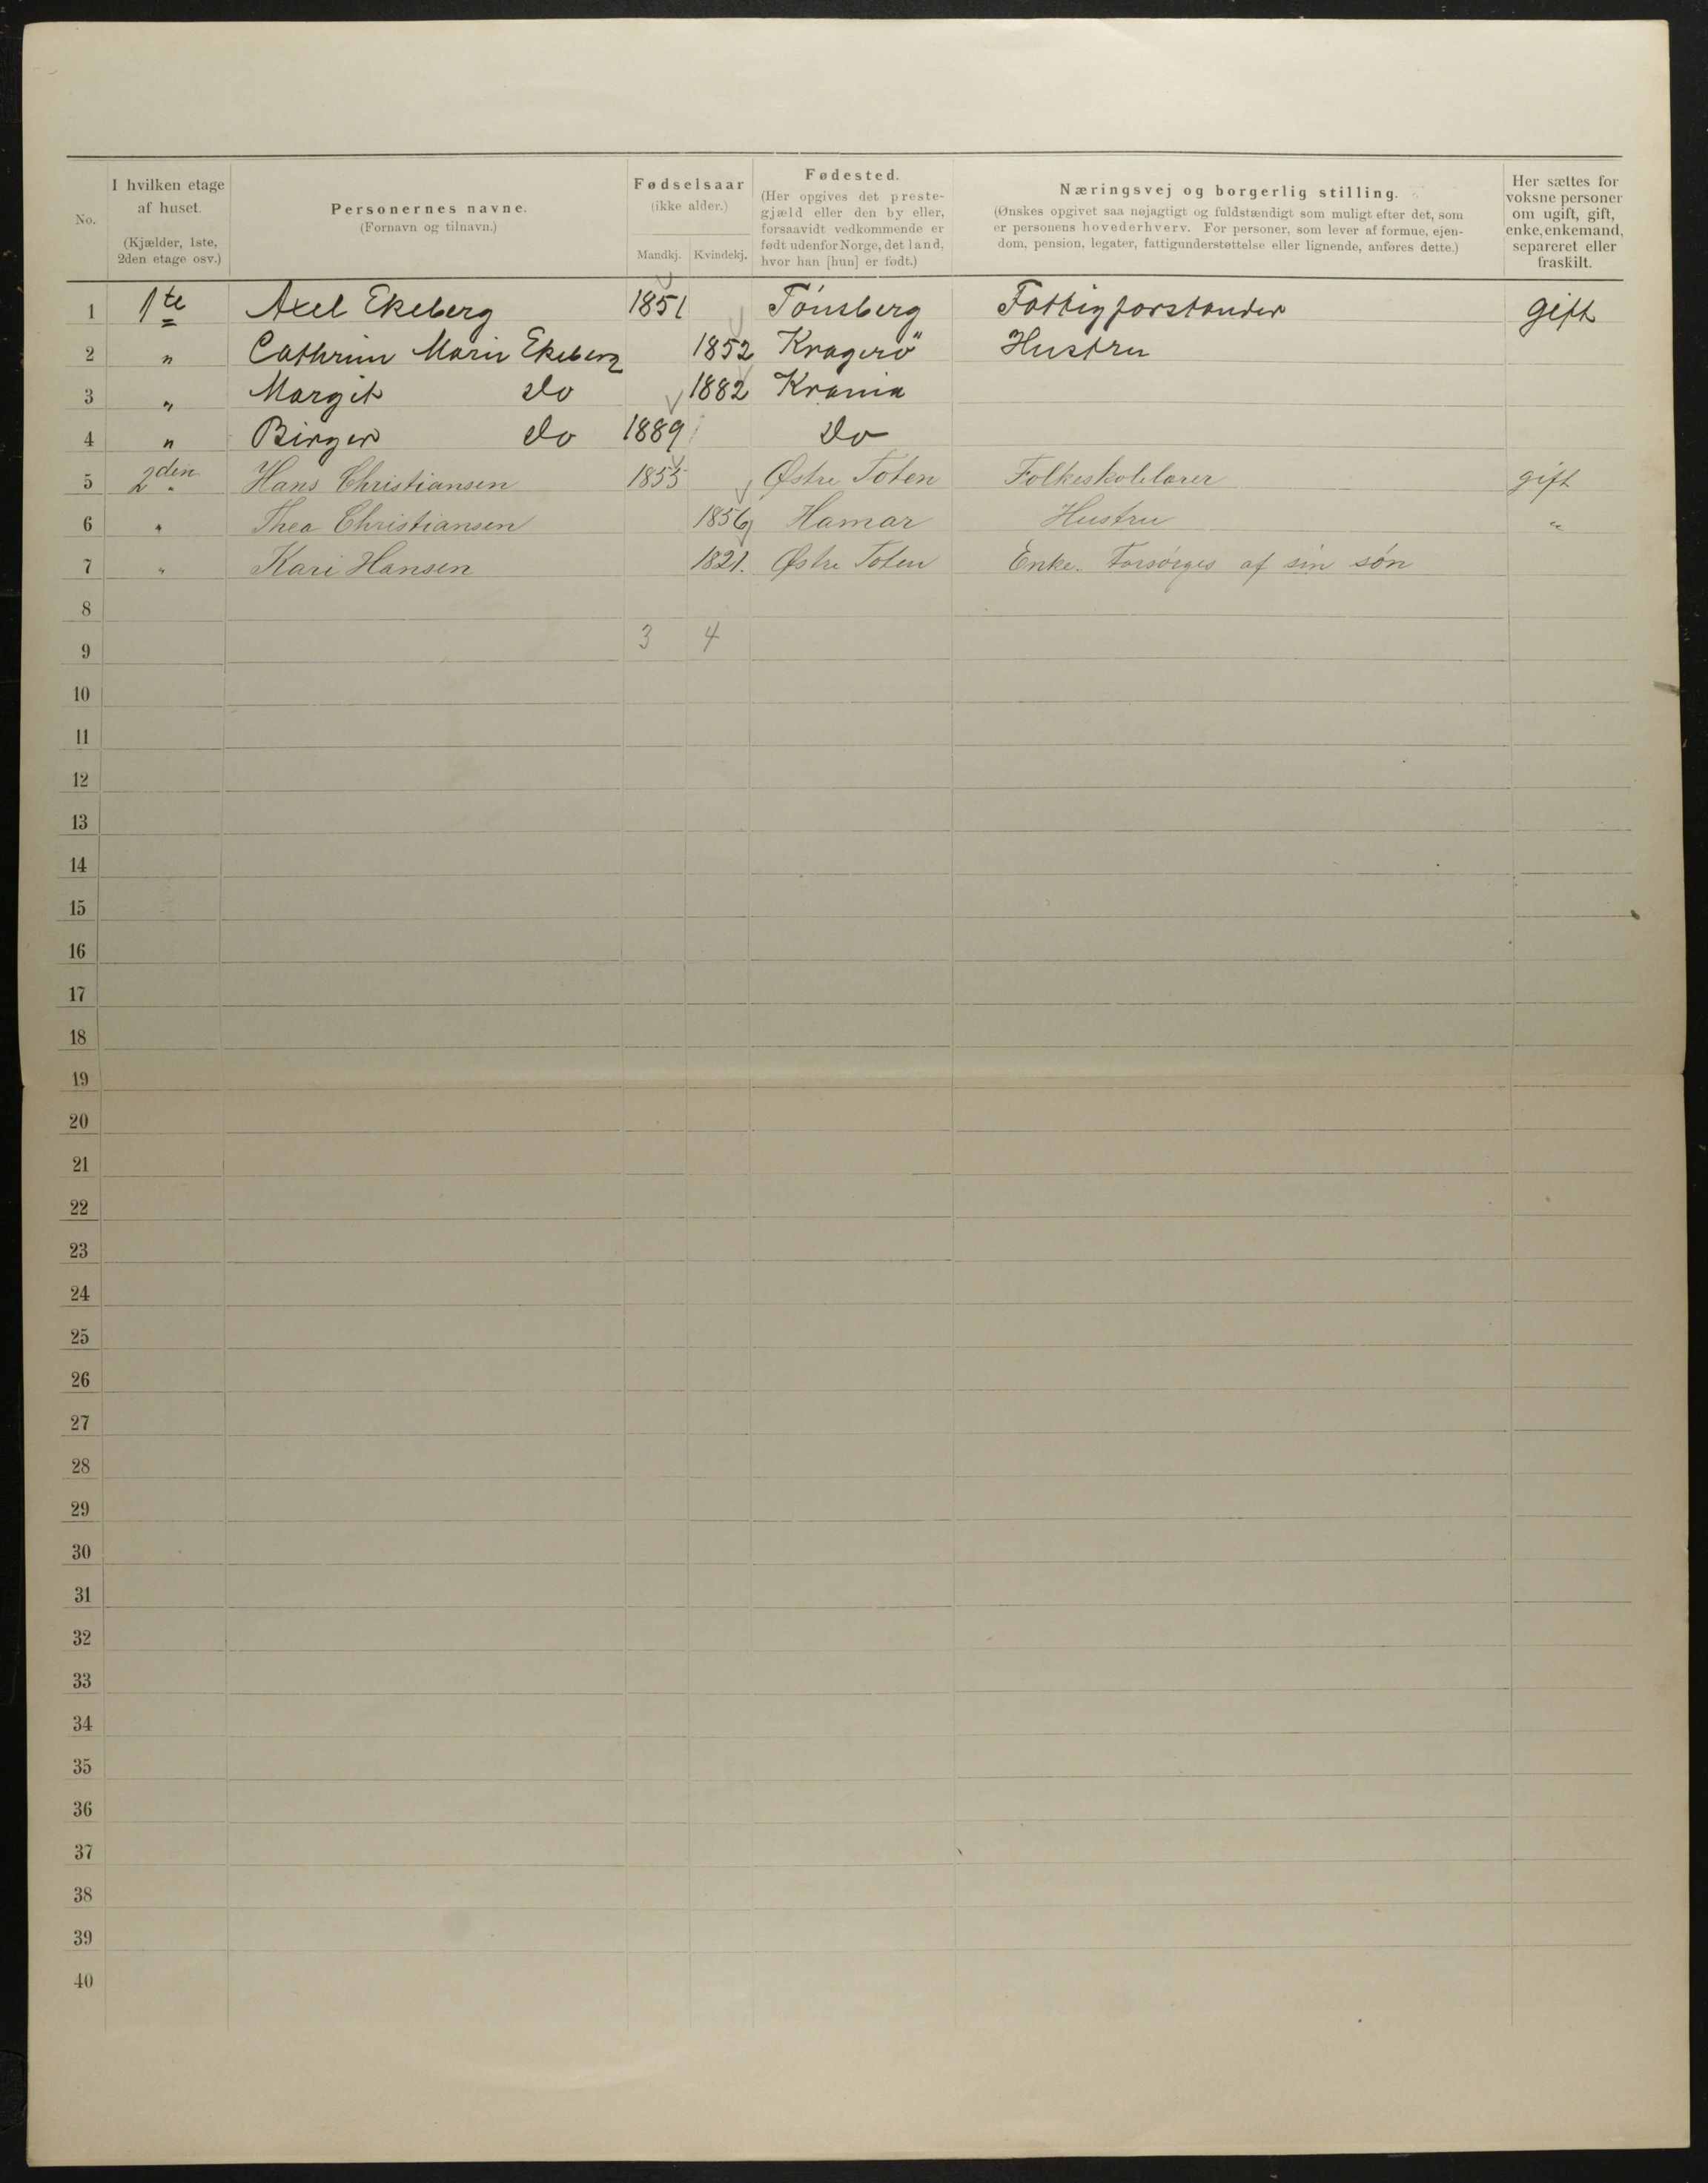 No.
I hvilken etage
af huset.
(Kjælder, 1ste,
2den etage osv.)
Personernes navne.
(Fornavn og tilnavn.)
Fødselsaar
(ikke alder.)
Mandkj. Kvindekj.
Fødested.
(Her opgives det preste-
gjæld eller den by eller,
forsaavidt vedkommende er
født udenfor Norge, det land,
hvor han [hun] er født.)
Næringsvej og borgerlig stilling.
(Ønskes opgivet saa nøjagtigt og fuldstændigt som muligt efter det, som
er personens hovederhverv. For personer, som lever af formue, ejen-
dom, pension, legater, fattigunderstøttelse eller lignende, anføres dette.)
Her sættes for
voksne personer
om ugift, gift,
enke, enkemand,
separeret eller
fraskilt.
1 1te Axel Ekeberg 1851 Tönsberg Fattigforstander gift
2 " Cathrine Marie Ekeberg 1852 Kragerö Hustru
3 " Margit Do 1882 Krania
4 " Birger Do 1889 Do
5 2den Hans Christiansen 1855 Østre Toten Folkeskolelærer gift
6 " Thea Christiansen 1856 Hamar Hustru "
7 " Kari Hansen 1821. Østre Toten Enke. Forsørges af sin søn
8
9 3 4
10
11
12
13
14
15
16
17
18
19
20
21
22
23
24
25
26
27
28
29
30
31
32
33
34
35
36
37
38
39
40